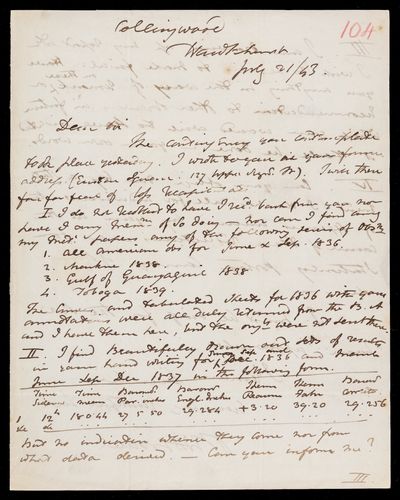 104
Collingwood
Hawkhurst
July 21/43
Dear Sir
The
took place yesterday. I wrote to you in your former
address (Euston Square: 17 Upper). I was then
for fear of loss
I do not recollect to have rec'd back from you nor
have I any Mem. of so doing – nor can I find among
my papers any of the following series of Obs
1. All American obs for June & Sep. 1836.
2. 1838.
3. Gulf of Guayaquil 1838
4. Tobago 1839.
The and tabulated sheets for 1836 with your
were all duly returned from the B. A
and I have them here, but the were not sent there
II. I find Beautifully drawn and sets of results
in your hand writing for Dec 1836 and March
June Sep. Dec 1837 in the following form.
Time Time Barom Barom Therm Therm Barom
Sidereal mean Par. inches Engl. Inches Reaum Fahr
1 12h 18.0.44 27.5.50 29.284 +3.20 39.20 29.256
&c &c
but no indication whence they come nor from
what data derived – Can you inform me?
III.